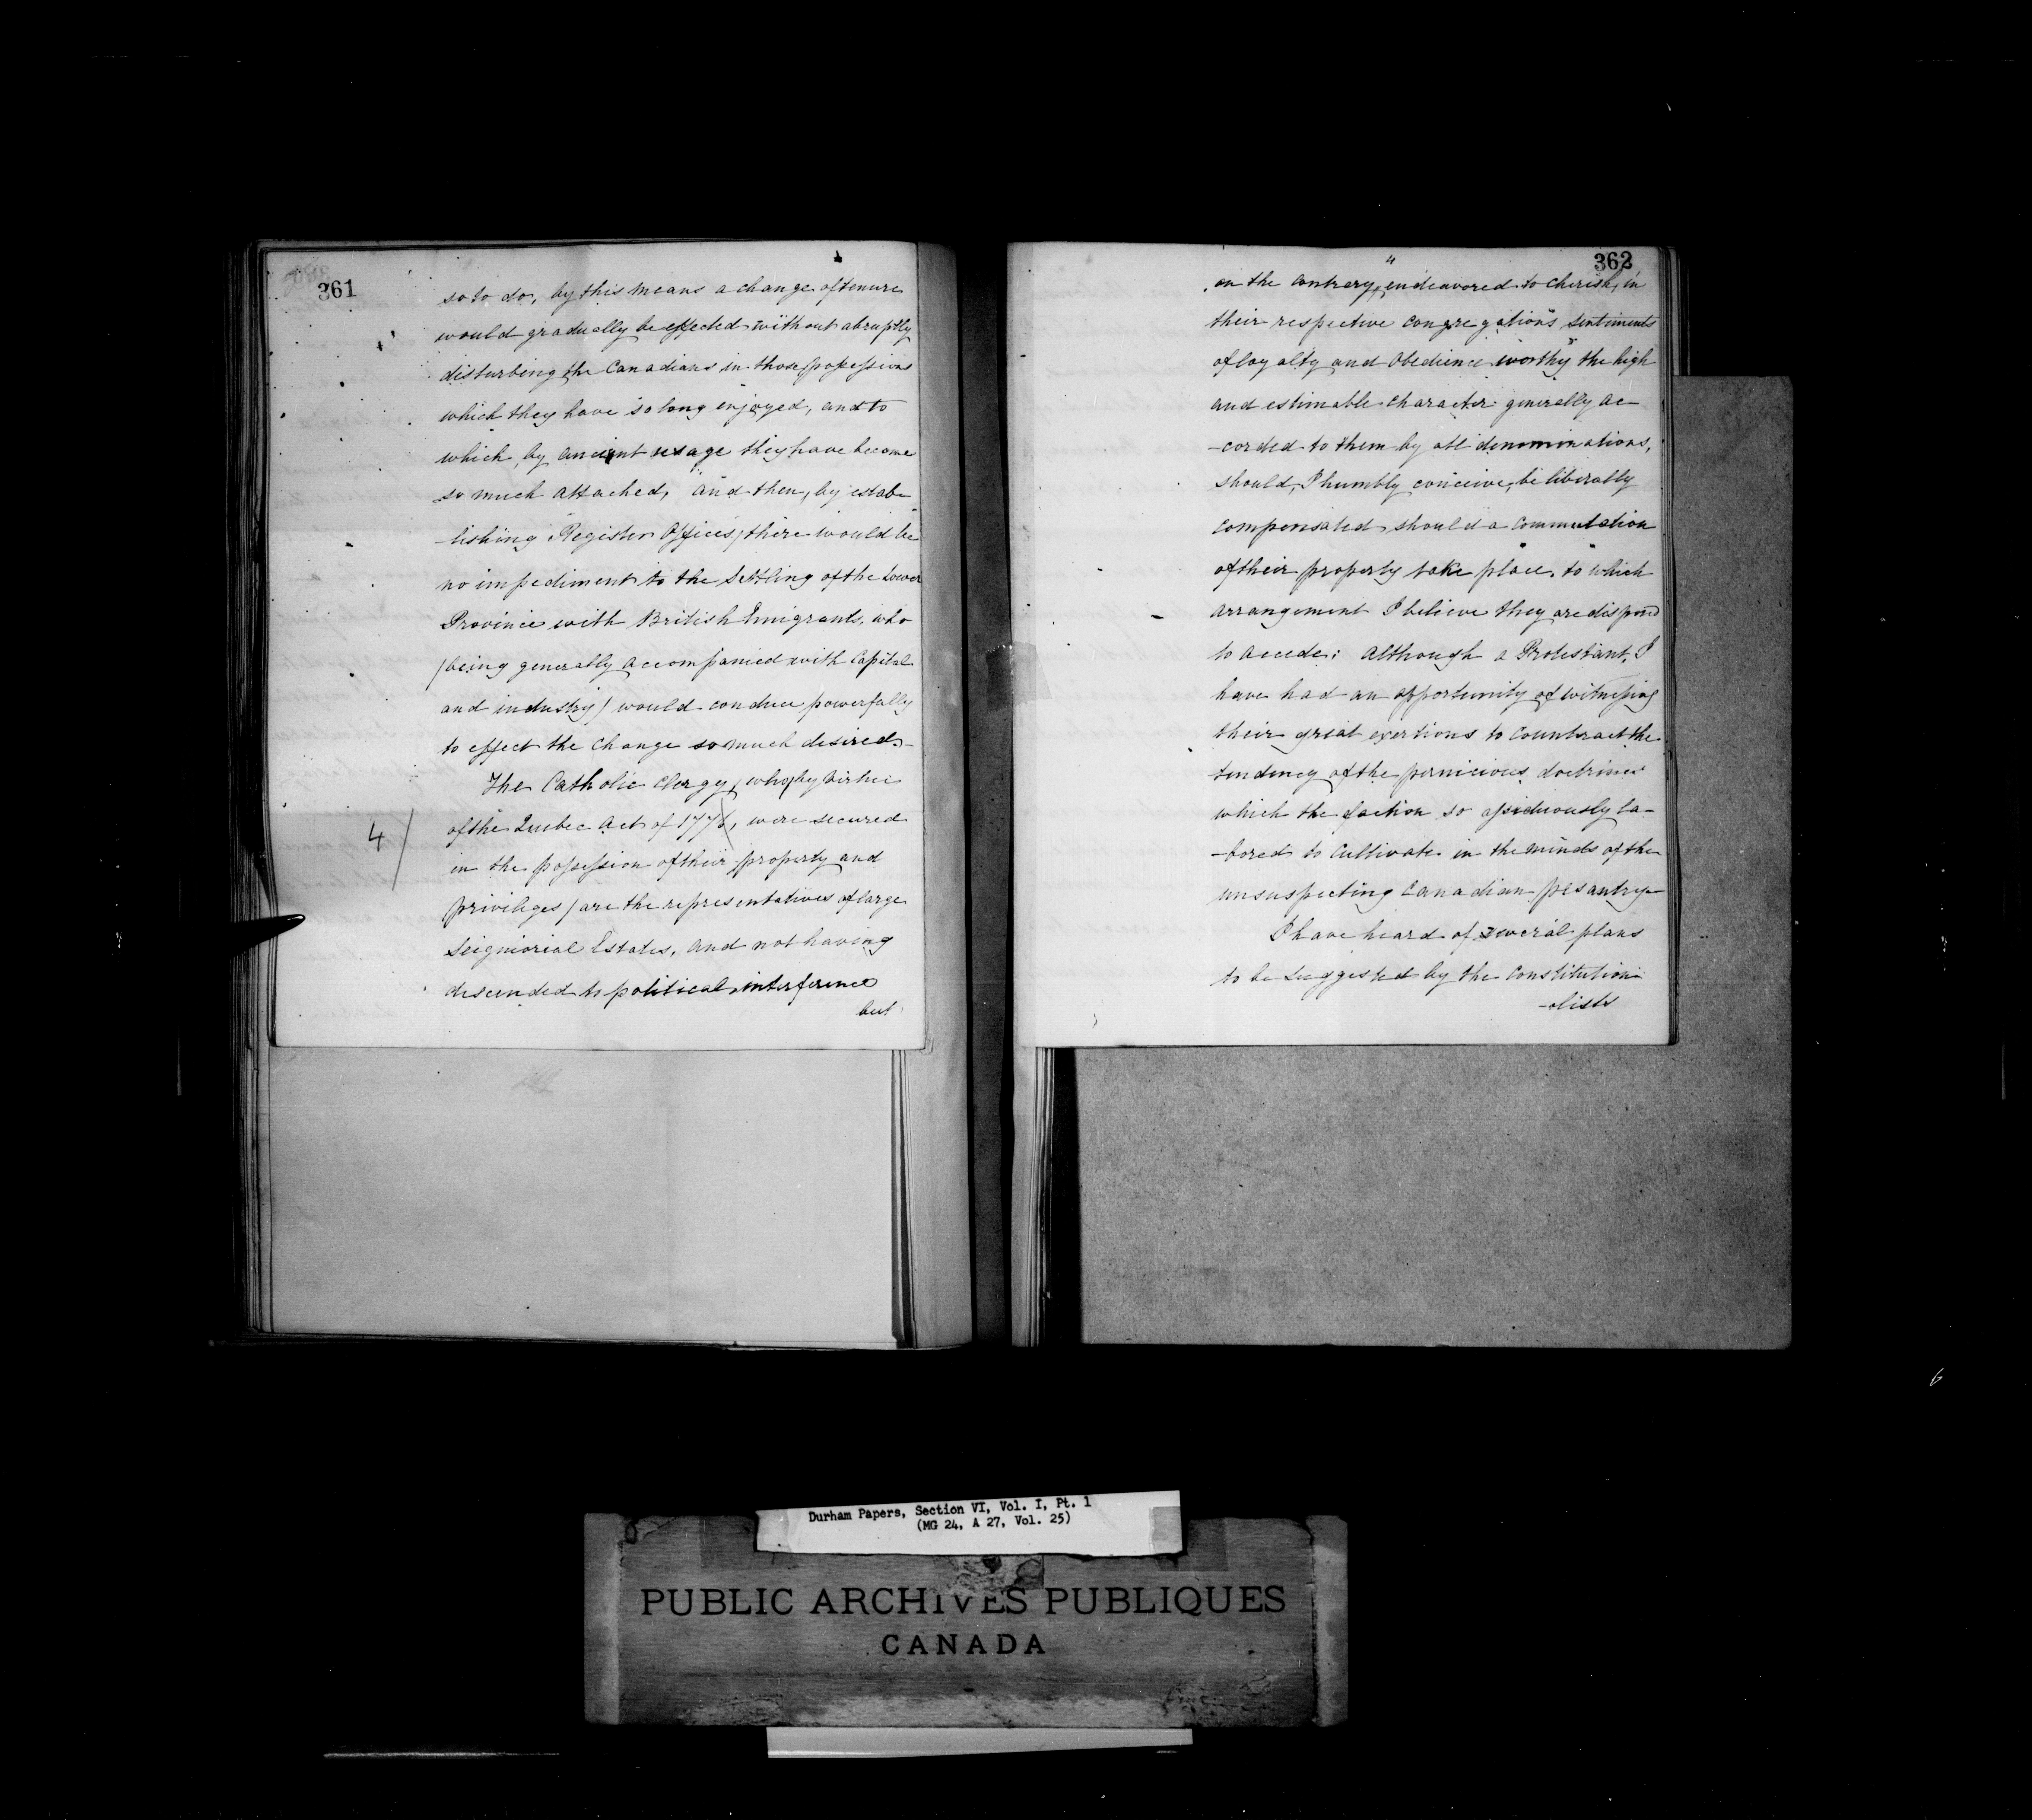 361
so to do, by this means a change of tenure
would gradually be effected without abruptly
disturbing the Canadians in those possessions
which they have so long enjoyed, and to
which, by ancient usage they have become
so much attached, and then, by estab-
-lishing Register Offices, there would be
no impediment to the Settling of the Lower
Province with British Emigrants, who
(being generally accompanied with Capital
and industry) would conduce powerfully
to effect the change so much desired.-
The Catholic Clergy, who (by virtue
4/
of the Quebec Act of 177, were secured
in the possession of their property and
privileges) are the representatives of large
Seigniorial Estates, and not having
descended to political interference
but
362
4
on the contrary, endeavored to cherish, in
their respective congregations sentiments
of loyalty and Obedience worthy the high
and estimable character generally ac-
-corded to them by all denominations,
should, I humbly conceive, be liberally
compensated should a commutation
of their property take place, to which
arrangement I believe they are disposed
to accede: Although a Protestant, I
have had an opportunity of witnessing
their great exertions to counteract the
tendency of the pernicious doctrines
which the faction so assiduously la-
-bored to cultivate in the minds of the
unsuspecting Canadian pesantry-
I have heard of several plans
to be suggested by the Constitution-
-alists
Durham Papers, Section VI, Vol. I, Pt. 1
(MG 24, A 27, Vol. 25)
PUBLIC ARCHIVES PUBLIQUES
CANADA